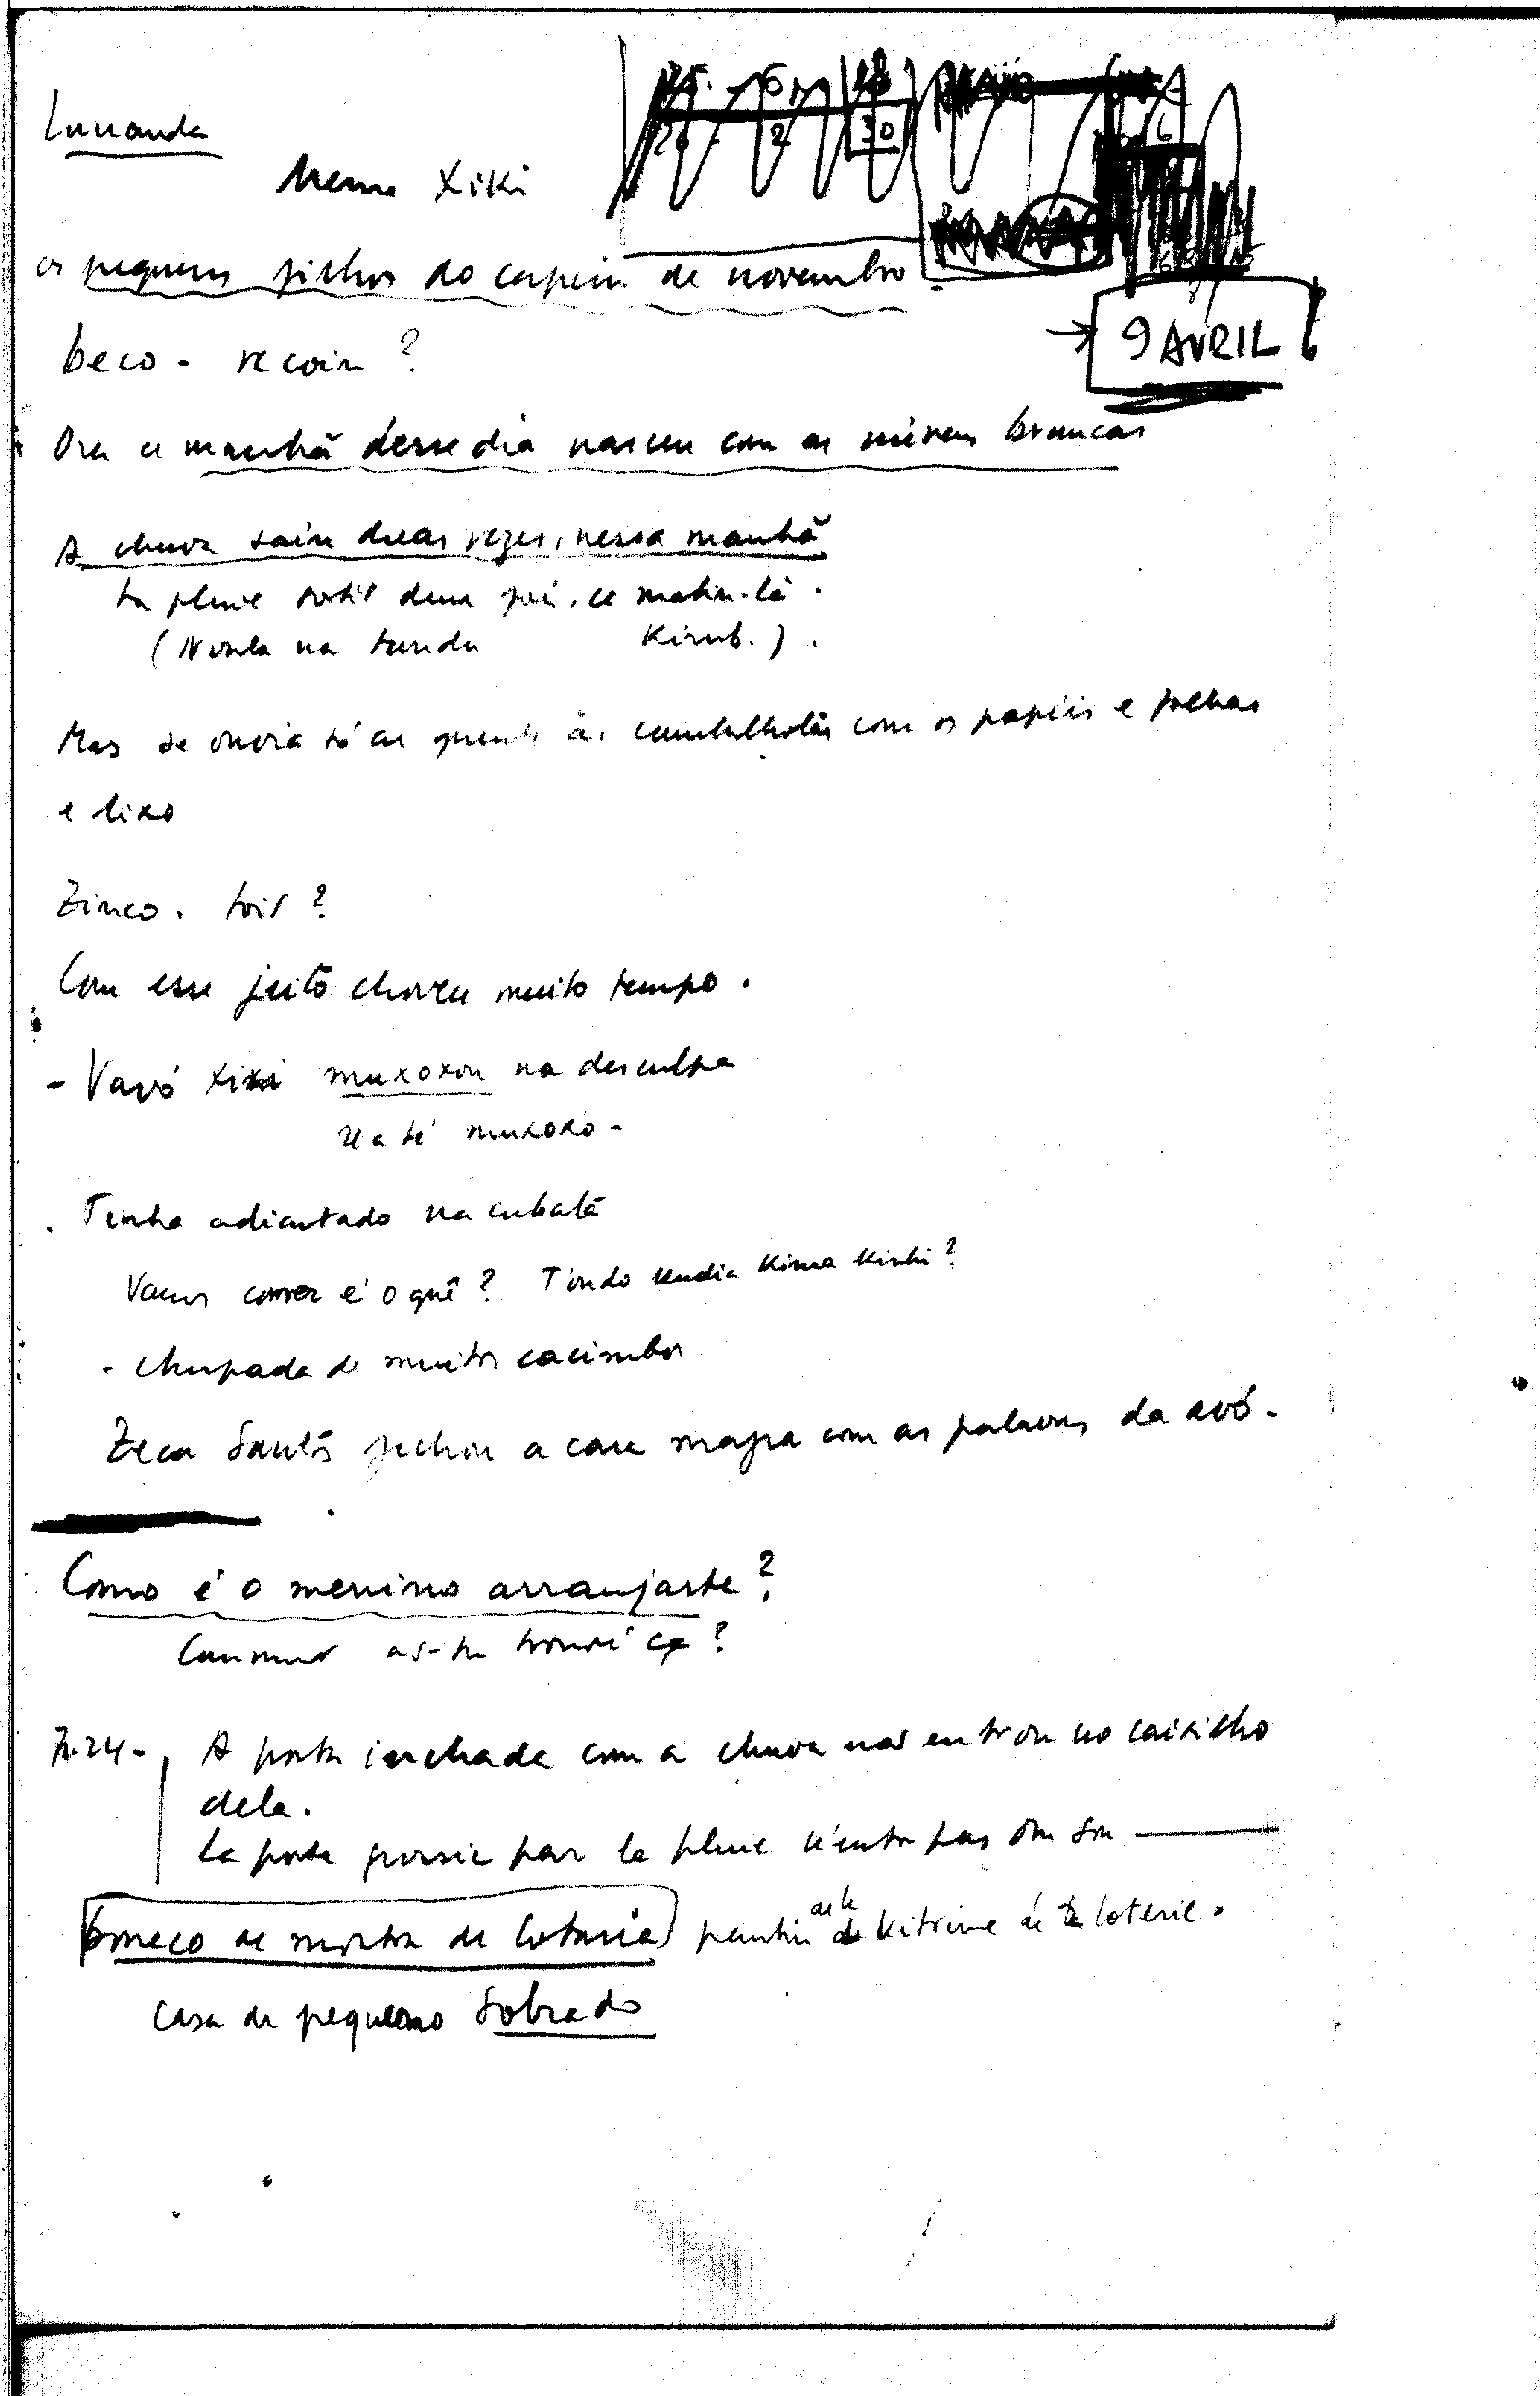 Luuanda
Meme Xiki
os pequenos filhos do capim de novembro.
→ 9 AVRIL
beco - recoin ?
Ora a manhã desse dia nasceu com as nuvens brancas
A chuva saiu duas vezes, nessa manhã
La pluie sortit deux fois, ce matin-là.
(Nvula na tunda Kimb.).
Mas se ouvia só as cambalhotas com os papéis e folhas
e lixo
Zinco. toit ?
Com esse jeito choveu muito tempo.
- Vavó Xixi muxoxou na desculpa
muxoxo -
. Tinha adiantado na cubata
Vamos comer é o quê ? Tondo kudia kima kinhi ?
- chupada de muitos cacimbos
Zeca Santos fechou a cara magra com as palavras da avó.
Como é o menino arranjaste ?
Comment as-tu trouvé ça ?
A porta inchada com a chuva não entrou no caixilho
dela.
La porte grossie par la pluie n'entra pas dans son
boneco de montra de lotaria pantin de vitrine de loterie.
casa de pequeno Sobrado